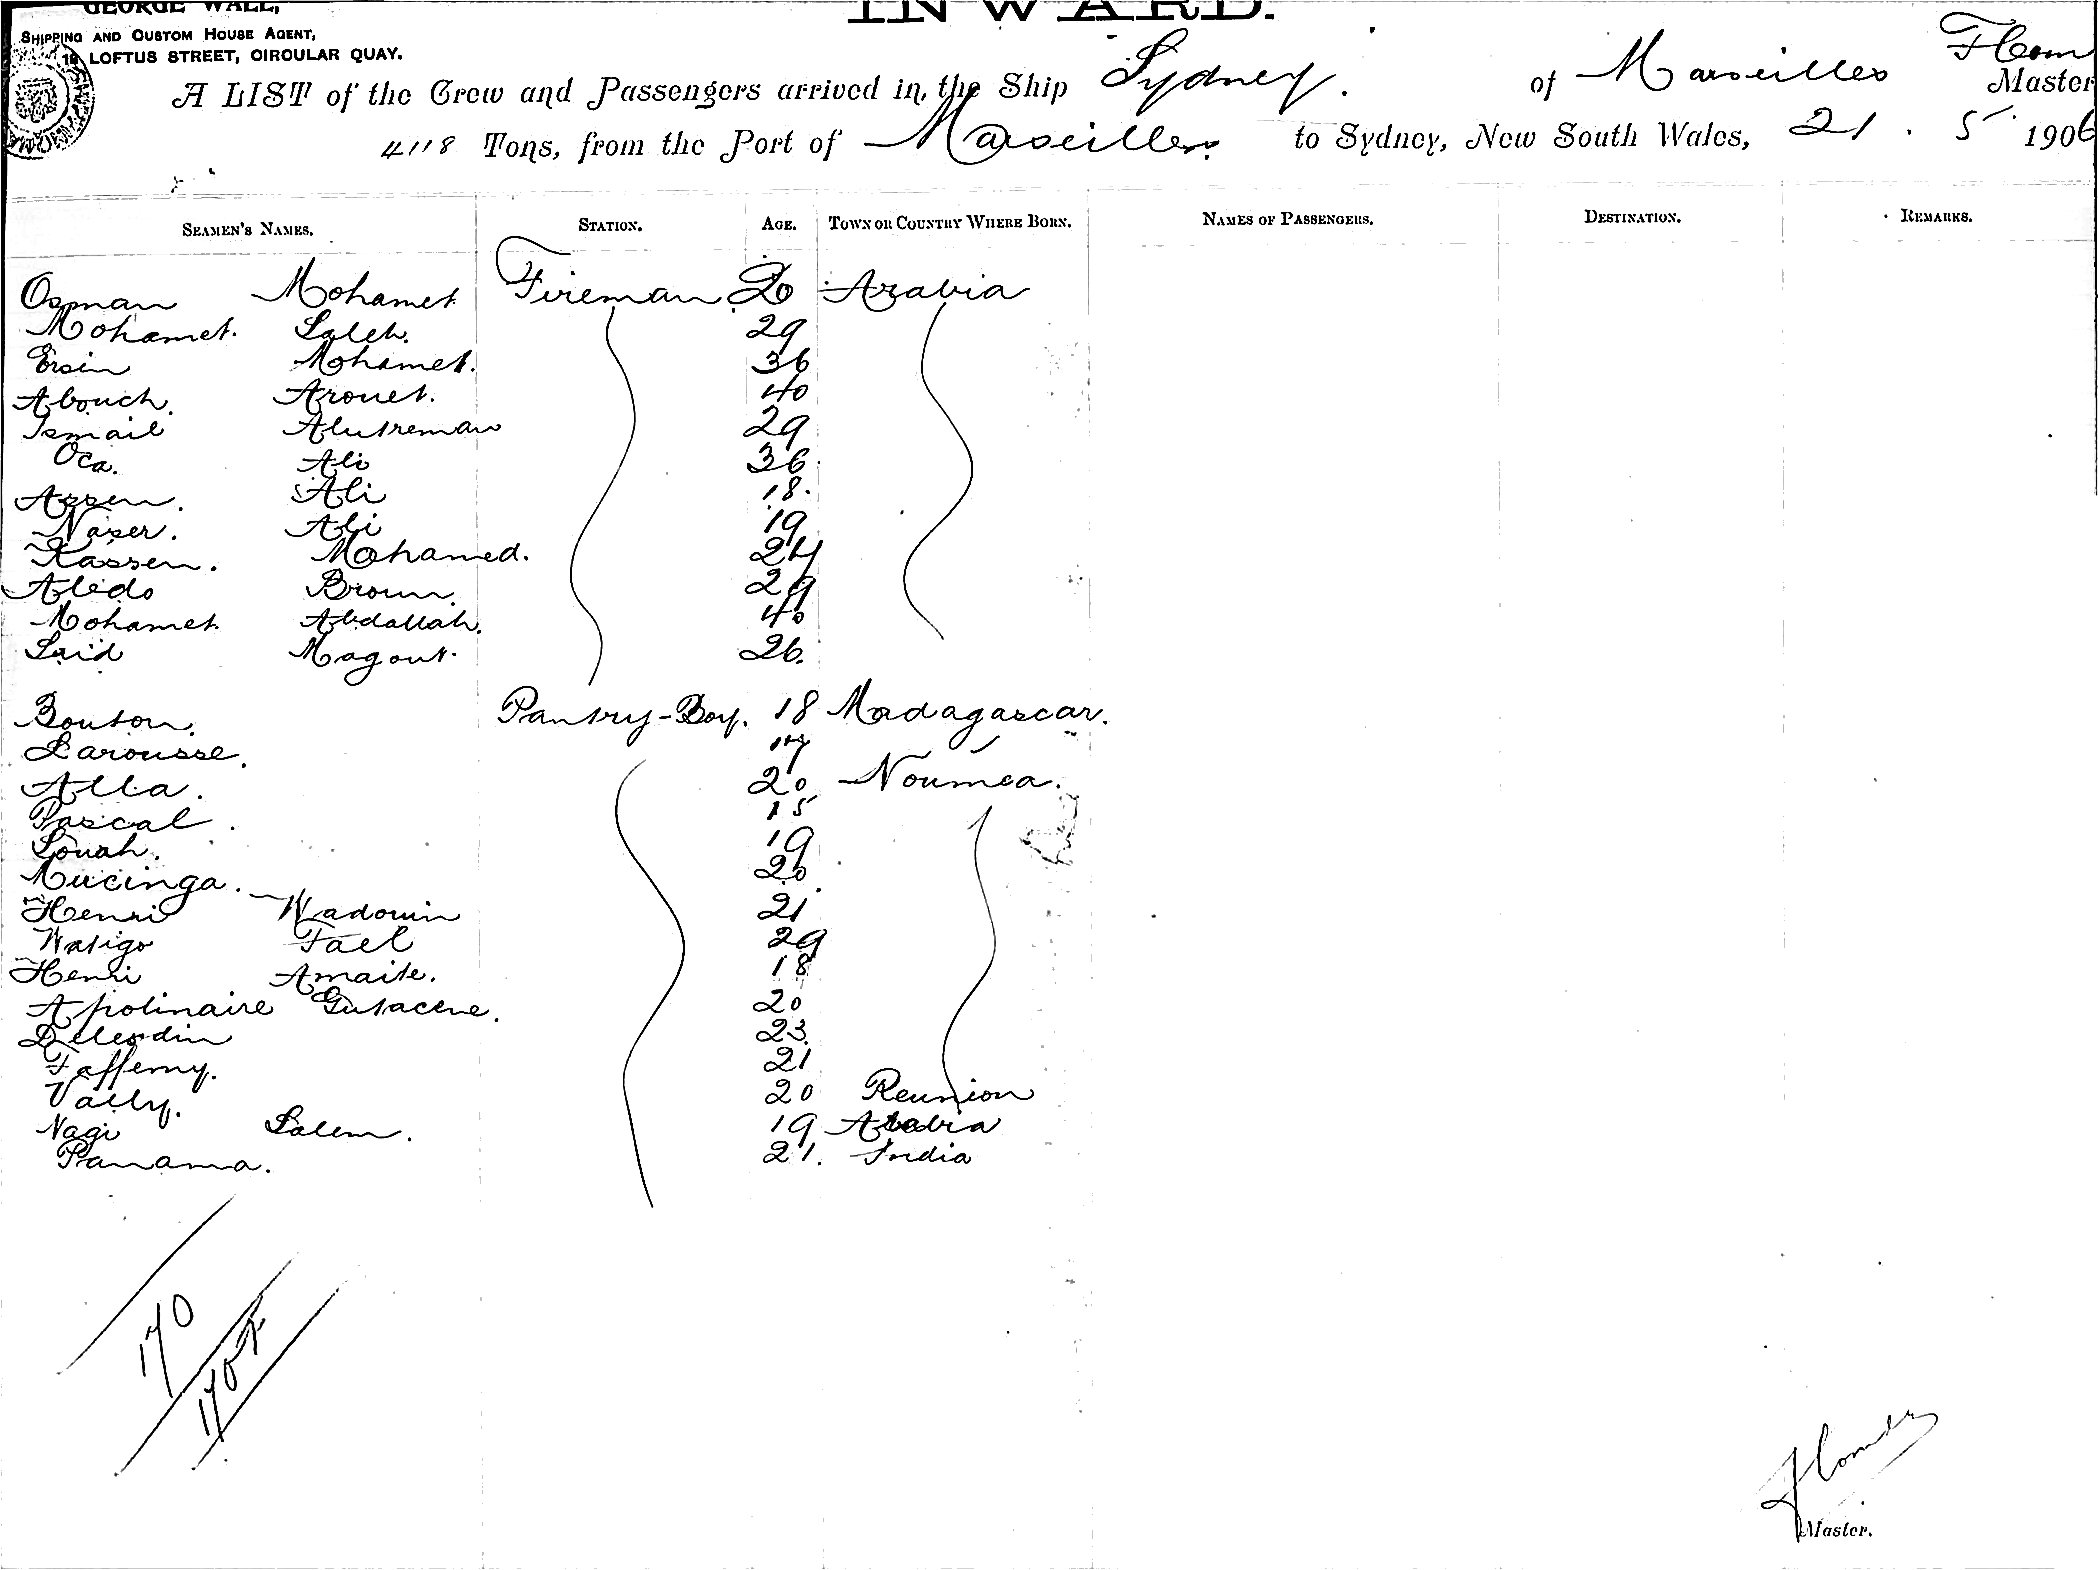 GEORGE WALL,
SHIPPING AND CUSTOM HOUSE AGENT,
LOFTUS STREET, CIRCULAR QUAY.
INWARD.
A LIST of the Crew and Passengers arrived in the Ship Sydney. of Marseilles Master
4118 Tons, from the Port of Marseilles. to Sydney, New South Wales, 21. 5 1906
SEAMEN'S NAMES. STATION. AGE. TOWN OR COUNTRY WHERE BORN. NAMES OF PASSENGERS. DESTINATION. REMARKS.
Osman Mohamet Fireman 20 Arabia
Mohamet. Saleh. 29
Ersin Mohamet. 36
Abouch. Arouet. 40
Ismail Alutreman 29
Oca. Ali 36
Assen. Ali 18.
Naser. Ali 19
Kassen. Mohamed. 24
Aledo Broun. 29
Mohamet Abdallah. 40
Said Magout. 26.
Bouton. Pantry-Boy. 18 Madagascar.
Larousse. 17
Alla. 20 Noumea.
Pascal. 15
Louah. 19
Mucinga. 20
Henri Wadouin 21
Watigo Fael 29
Henri Amaite. 18
Apolinaire Gutacene. 20
Delerdin 23.
Faffemy. 21
Vally. 20 Reunion
Nagi Salem. 19 Arabia
Panama. 21. India
170
Master.